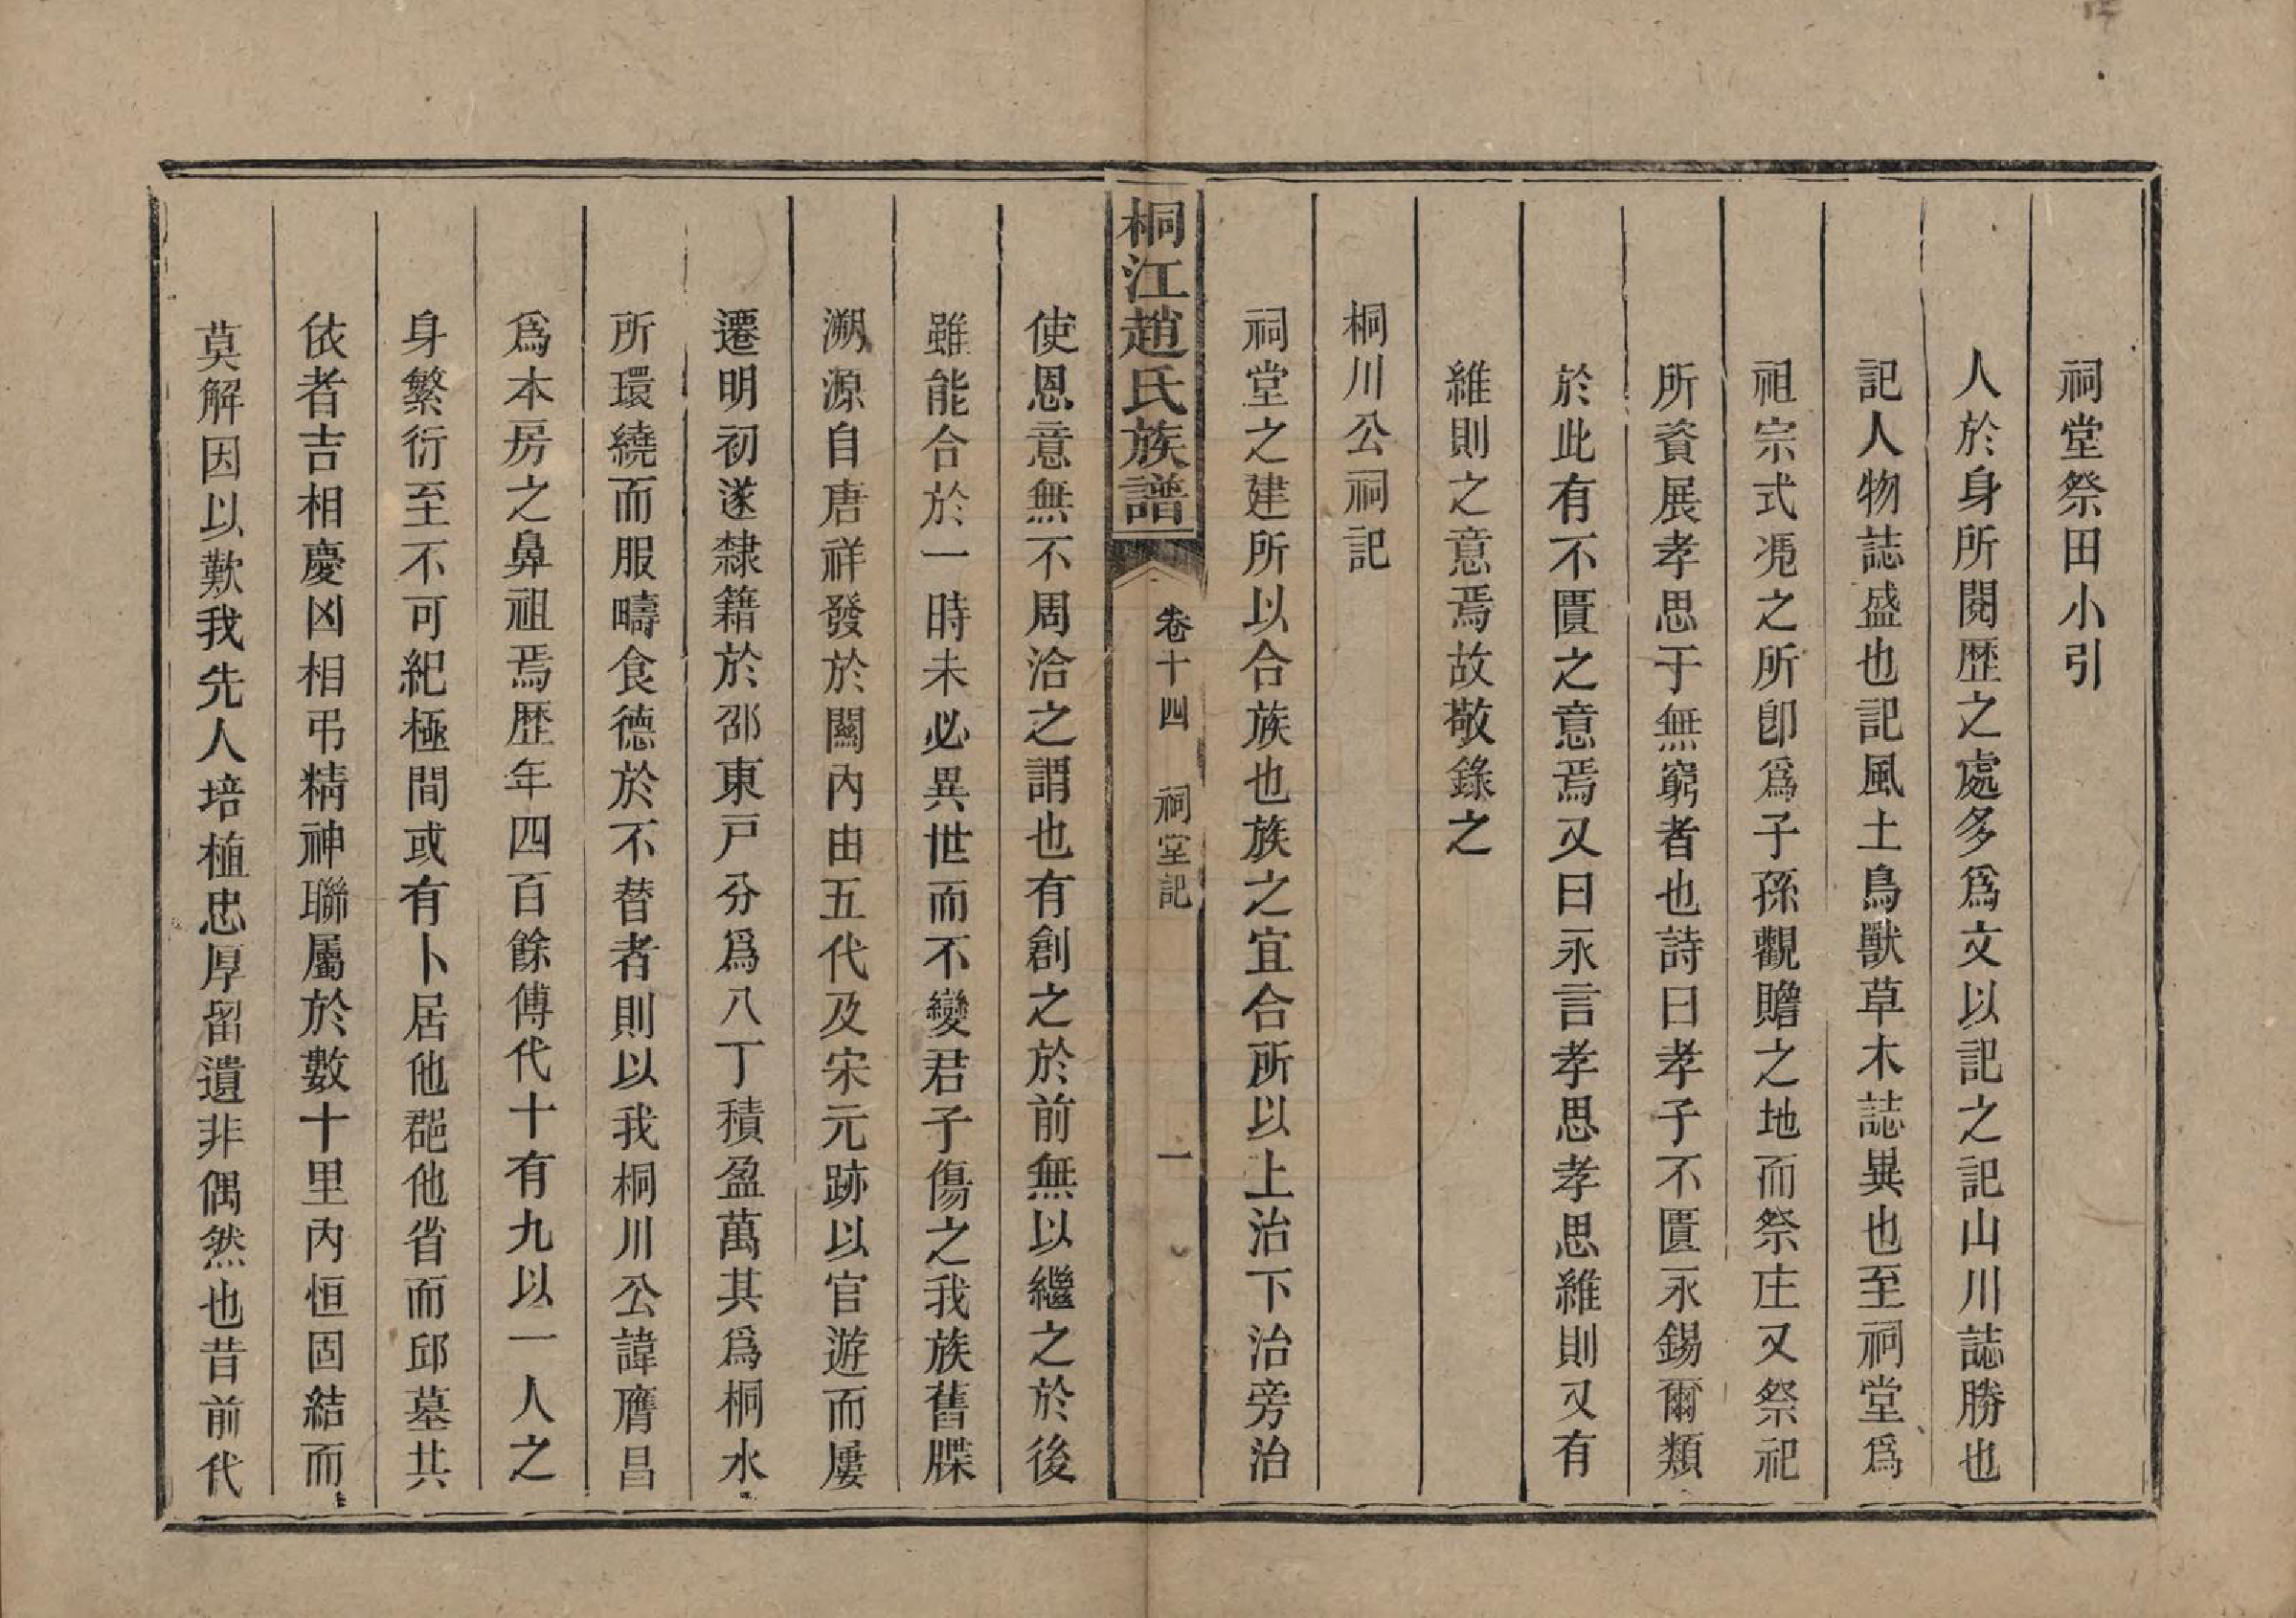 祠堂祭田小引
人於身所閱歷之處多爲文以記之記山川誌勝也
記人物誌盛也記風土鳥獸草木誌異也至祠堂爲
祖宗式凴之所卽爲子孫觀瞻之地而祭庄又祭祀
所資展孝思于無窮者也詩曰孝子不匱永錫爾類
於此有不匱之意焉又曰永言孝思孝思維則又有
維則之意焉故敬錄之
桐川公祠記
祠堂之建所以合族也族之宜合所以上治下治旁治
桐江趙氏族譜
卷十四 祠堂記 一
使恩意無不周洽之謂也有創之於前無以繼之於後
雖能合於一時未必異世而不變君子傷之我族舊牒
溯源自唐祥發於闗內由五代及宋元跡以官遊而屢
遷明初遂隸籍於邵東戸分爲八丁積盈萬其爲桐水
所環繞而服疇食德於不替者則以我桐川公諱膺昌
爲本房之鼻祖焉歷年四百餘傅代十有九以一人之
身繁衍至不可紀極間或有卜居他郡他省而邱墓共
依者吉相慶凶相弔精神聯屬於數十里內恒固結而
莫解因以歎我先人培植忠厚留遺非偶然也昔前代